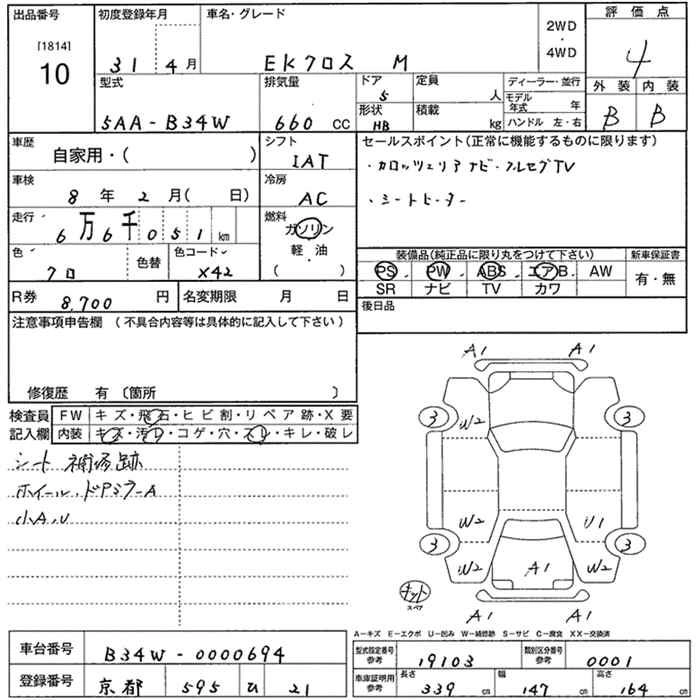 出品番号 初度登録年月 車名・グレード 2WD ・ 4WD 評価点
[1814] 10 31 4月 EKクロス M 4
型式 排気量 ドア 5 定員 人 ディーラー・並行 外装 内装
5AA-B34W 660 CC 形状 HB 積載 kg モデル年式 年 ハンドル 左・右 B B
車歴 自家用・( ) シフト IAT セールスポイント(正常に機能するものに限ります)
・カロッツェリアナビ・フルセグTV
車検 8年 2月( 日) 冷房 AC ・シートヒーター
走行 6万6千051km 燃料 ガソリン 軽・油 ・ ( )
装備品(純正品に限り丸をつけて下さい) 新車保証書
色 クロ 色替 色コード X42 PS PW ABS エアB. AW 有・無
SR ナビ TV カワ
R券 8,700 円 名変期限 月 日 後日品
注意事項申告欄 (不具合内容等は具体的に記入して下さい)
修復歴 有 〔箇所 〕
検査員 FW キズ・飛石・ヒビ割・リペア跡・X要
記入欄 内装 キズ・汚レ・コゲ・穴・スレ・キレ・破レ
シート 補修跡
小A.U
A1 A1
3 W2 3
W2 U1
3 W2 A1 W2 3
キット
スペア
A1 A1
A−キズ E−エクボ U−凹み W−補修跡 S−サビ C−腐食 XX−交換済
車台番号 B34W-0000694 型式指定番号 参考 19103 類別区分番号 参考 0001
登録番号 京都 595 ひ 21 車庫証明用 参考 長さ 339 cm 幅 147 cm 高さ 164 cm